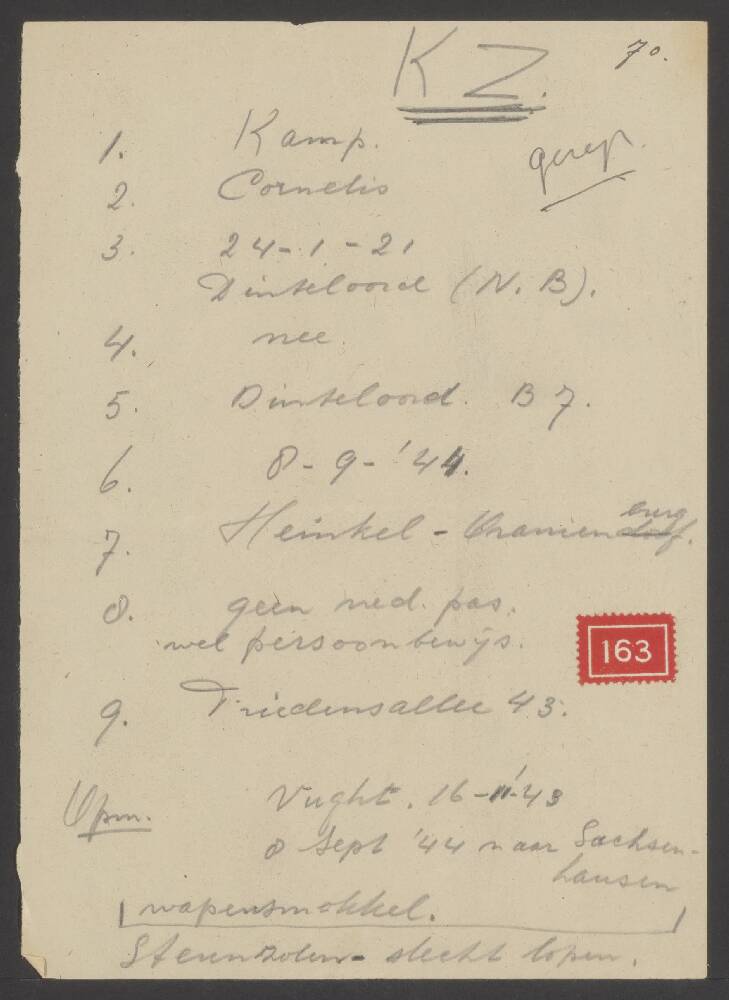 70.
KZ.
gerep.
1. Kamp.
2. Cornelis
3. 24-1-21
Dinteloord (N.B).
4. nee.
5. Dinteloord. B 7.
6. 8-9-'44.
7. Heinkel - Oranienburg
8. geen ned. pas.
wel persoonbewijs.
163
9. Friedensallee 43.
Opm. Vught. 16-11-'43
8 Sept '44 naar Sachsen-
hausen
wapensmokkel.
Steunzolen - slecht lopen.